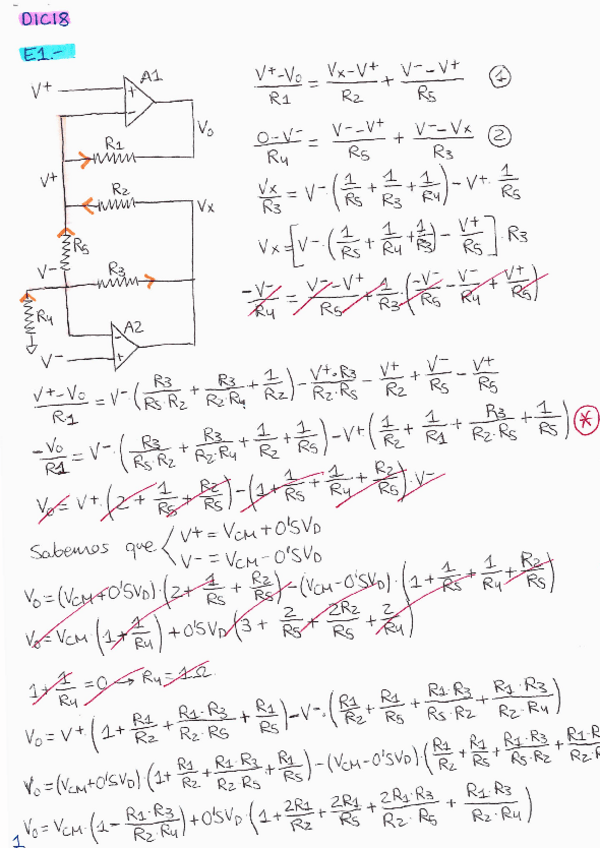 DIC18
E1.-
A1
V+
+
-
Vo
R1
V+
R2
Vx
R5
V-
R3
R4
A2
-
+
V-
(V+ - Vo)/R1 = (Vx - V+)/R2 + (V- - V+)/R5 ①
(0 - V-)/R4 = (V- - V+)/R5 + (V- - Vx)/R3 ②
Vx/R3 = V- · (1/R5 + 1/R3 + 1/R4) - V+ · 1/R5
Vx = [V- · (1/R5 + 1/R4 + 1/R3) - V+/R5] · R3
-V-/R4 = (V- - V+)/R5 + 1/R3 · (-V-/R5 - V-/R4 + V+/R5)
(V+ - Vo)/R1 = V- · (R3/(R5·R2) + R3/(R2·R4) + 1/R2) - V+·R3/(R2·R5) - V+/R2 + V-/R5 - V+/R5
-Vo/R1 = V- · (R3/(R5·R2) + R3/(R2·R4) + 1/R2 + 1/R5) - V+ (1/R2 + 1/R1 + R3/(R2·R5) + 1/R5) *
Vo = V+ · (2 + 1/R5 + R2/R5) - (1 + 1/R5 + 1/R4 + R2/R5) · V-
Sabemos que { V+ = VCM + 0'5VD
V- = VCM - 0'5VD
Vo = (VCM + 0'5VD) · (2 + 1/R5 + R2/R5) - (VCM - 0'5VD) · (1 + 1/R5 + 1/R4 + R2/R5)
Vo = VCM · (1 + 1/R4) + 0'5VD (3 + 2/R5 + 2R2/R5 + 2/R4)
1 + 1/R4 = 0 → R4 = 1Ω
Vo = V+ · (1 + R1/R2 + R1·R3/(R2·R5) + R1/R5) - V- · (R1/R2 + R1/R5 + R1·R3/(R5·R2) + R1·R3/(R2·R4))
Vo = (VCM + 0'5VD) · (1 + R1/R2 + R1·R3/(R2·R5) + R1/R5) - (VCM - 0'5VD) · (R1/R2 + R1/R5 + R1·R3/(R5·R2) +
Vo = VCM · (1 - R1·R3/(R2·R4)) + 0'5VD · (1 + 2R1/R2 + 2R1/R5 + 2R1·R3/(R2·R5) + R1·R3/(R2·R4))
1